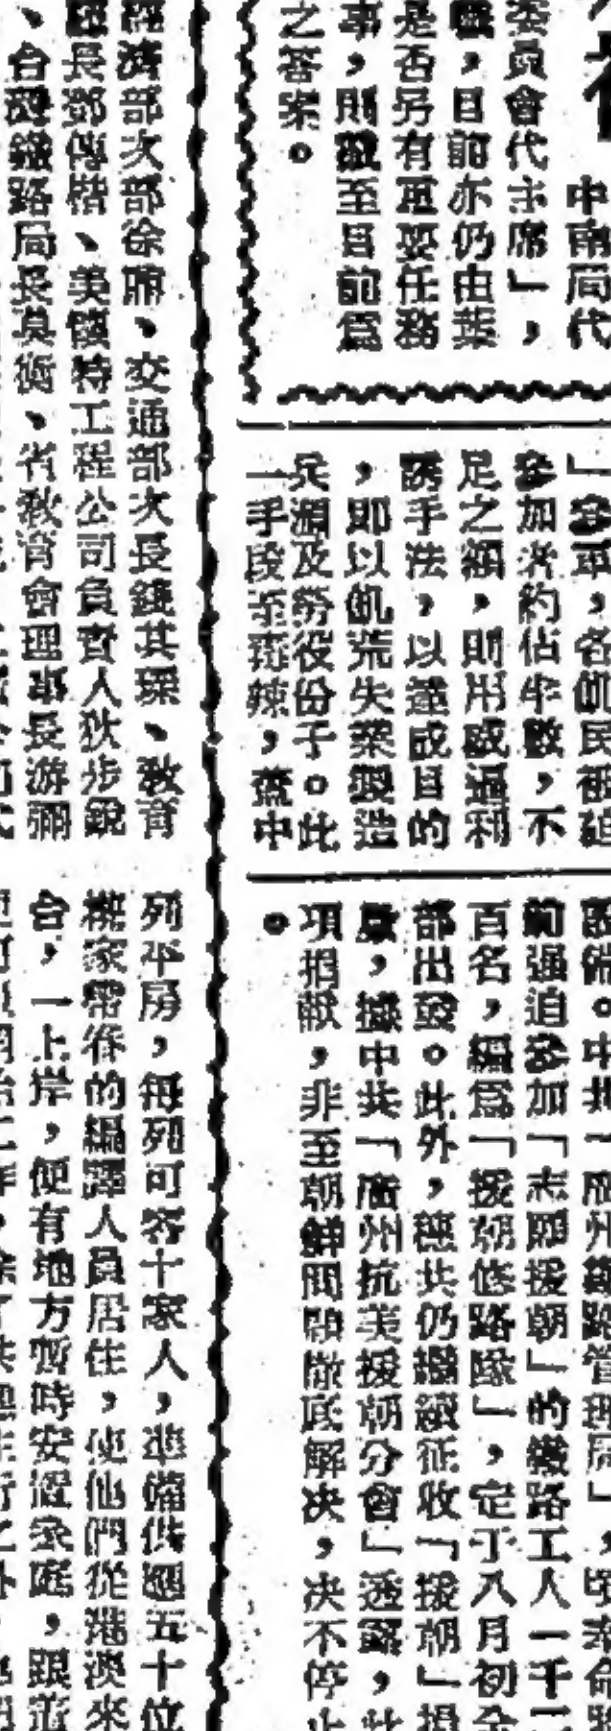 中南局代
委員會代主席」，
職，目前亦仍由葉
是否另有重要任務
事，則截至目前爲
之答案。
」參軍，各師民被迫
參加者約佔半數，不
足之額，則用威逼利
誘手法，以達成目的
，即以飢荒失業製造
兵源及勞役份子。此
一手段至毒辣，舊中
前强迫參加「志願援朝」的鐵路工人一千二
百名，編爲「援朝修路隊」，定于八月初全
部出發。此外，穗共仍繼續征收「援朝」捐
獻，據中共「廣州抗美援朝分會」透露，此
項捐献，非至朝鮮問題徹底解决，决不停止
。
經濟部次部徐鼐、交通部次長錢其琛、教育
廳長鄧傳楷、美懷特工程公司負責人狄步銳
、台灣鐵路局長莫衡、省教育會理事長游彌
列平房，每列可容十家人，準備供應五十位
携家帶眷的編譯人員居住，使他們從港澳來
台，一上岸，便有地方暫時安置家庭，跟着